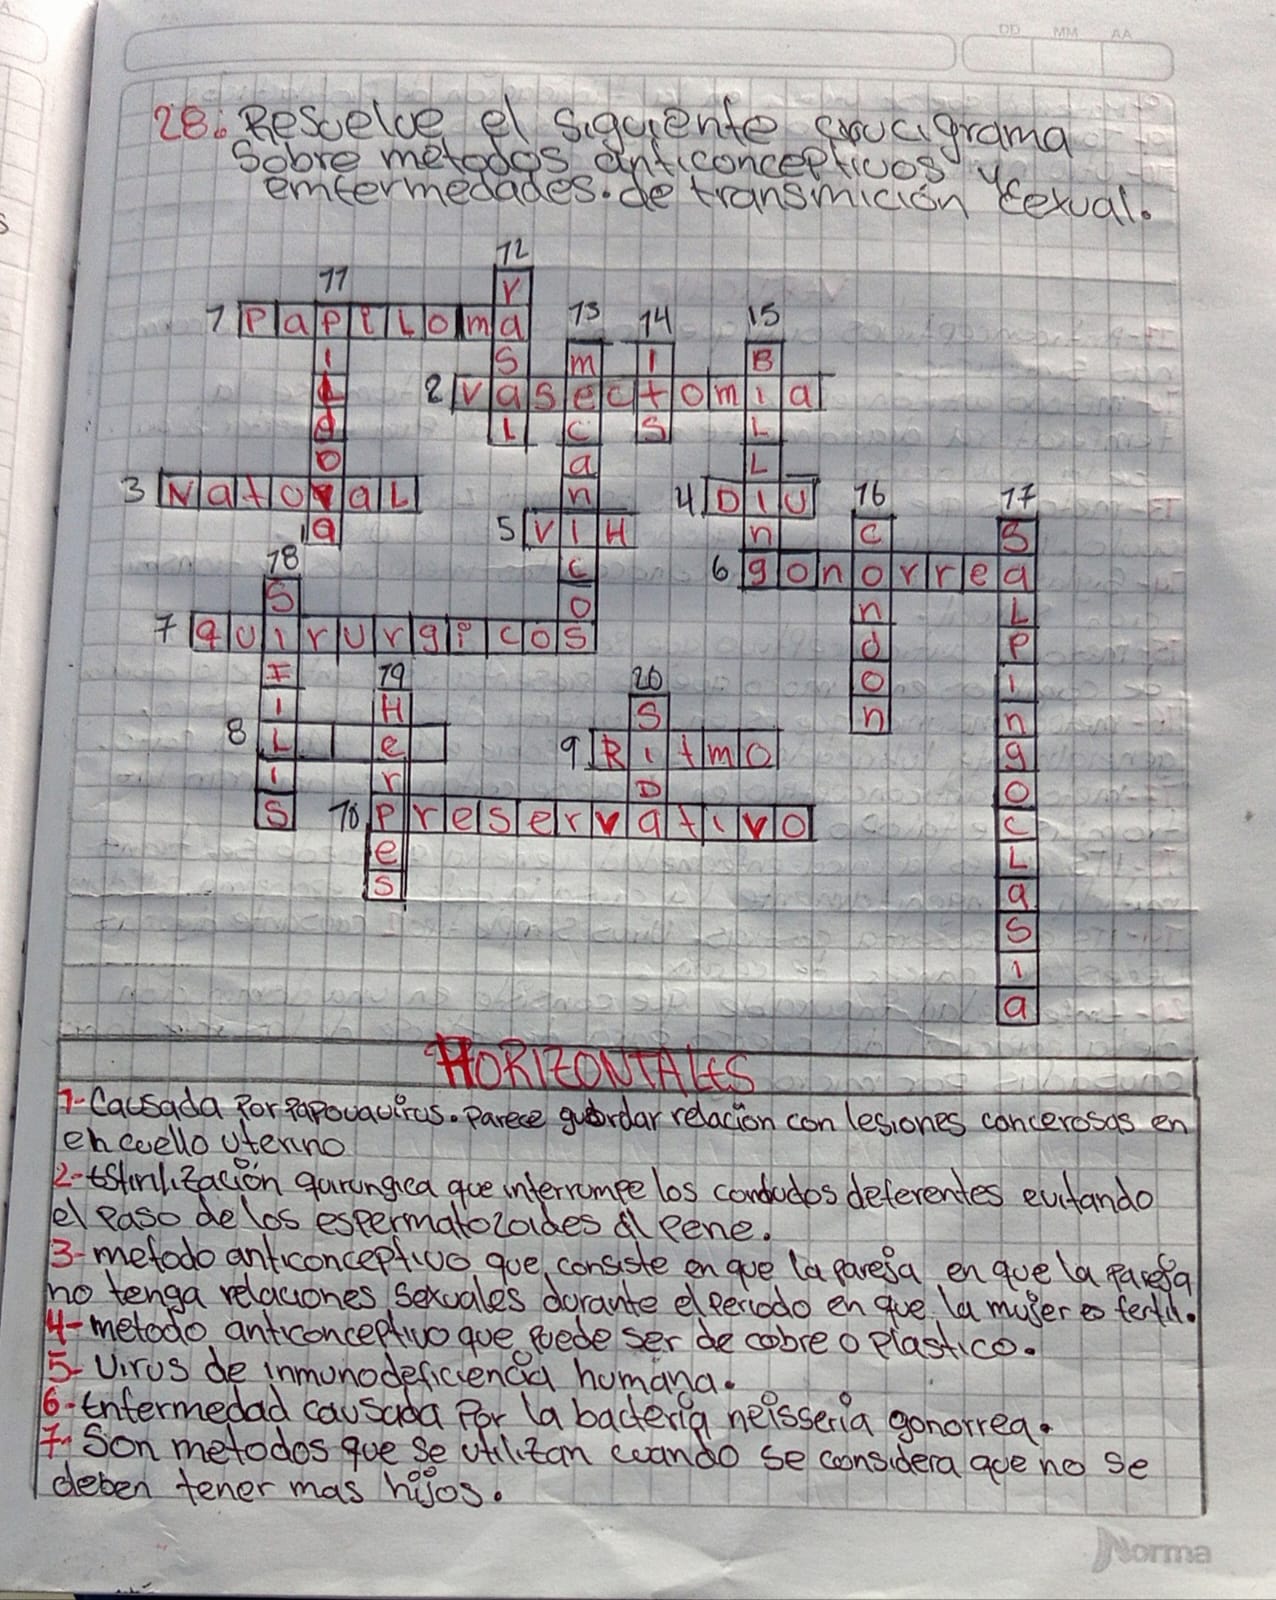 DD MM AA
28. Rescelve el siguiente crucigrama
Sobre metodos anticonceptivos y
emfermedades. de transmición Sexual.
12
11
1 Papiloma
13 14 15
2 vasectomia
3 Natural
4 DIU
16
17
5 VIH
18
6 gonorrea
7 quirurgicos
19
20
8 L e
9 Ritmo
10 Preservativo
vasal
Pildora
mecanicos
ITS
Billing
condon
Salpingoclasia
SIFILIS
Herpes
SIDa
HORIZONTALES
1- Causada Por Papovavirus. Parece guardar relación con lesiones concerosas en
en cuello uterino
2- Estirilización quirurgica que interrumpe los conductos deferentes evitando
el Paso de los espermatozoides al Pene.
3- metodo anticonceptivo que consiste en que la pareja en que la Pareja
no tenga relaciones sexuales durante el Periodo en que la mujer es fertil.
4- metodo anticonceptivo que Puede ser de cobre o Plastico.
5- Virus de inmunodeficiencia humana.
6- Enfermedad causada Por la bacteria neisseria gonorrea.
7- Son metodos que se utilizan cuando se considera que no se
deben tener mas hijos.
Norma